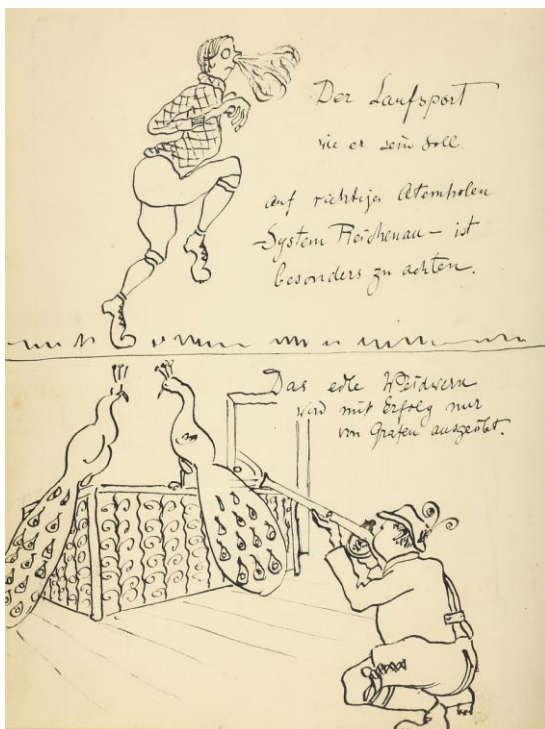 Der Laufsport
wie er sein soll.
auf richtiges Atemholen
-System Reichenau - ist
besonders zu achten.
Das edle Weidwerk
wird mit Erfolg nur
von Grafen ausgeübt.